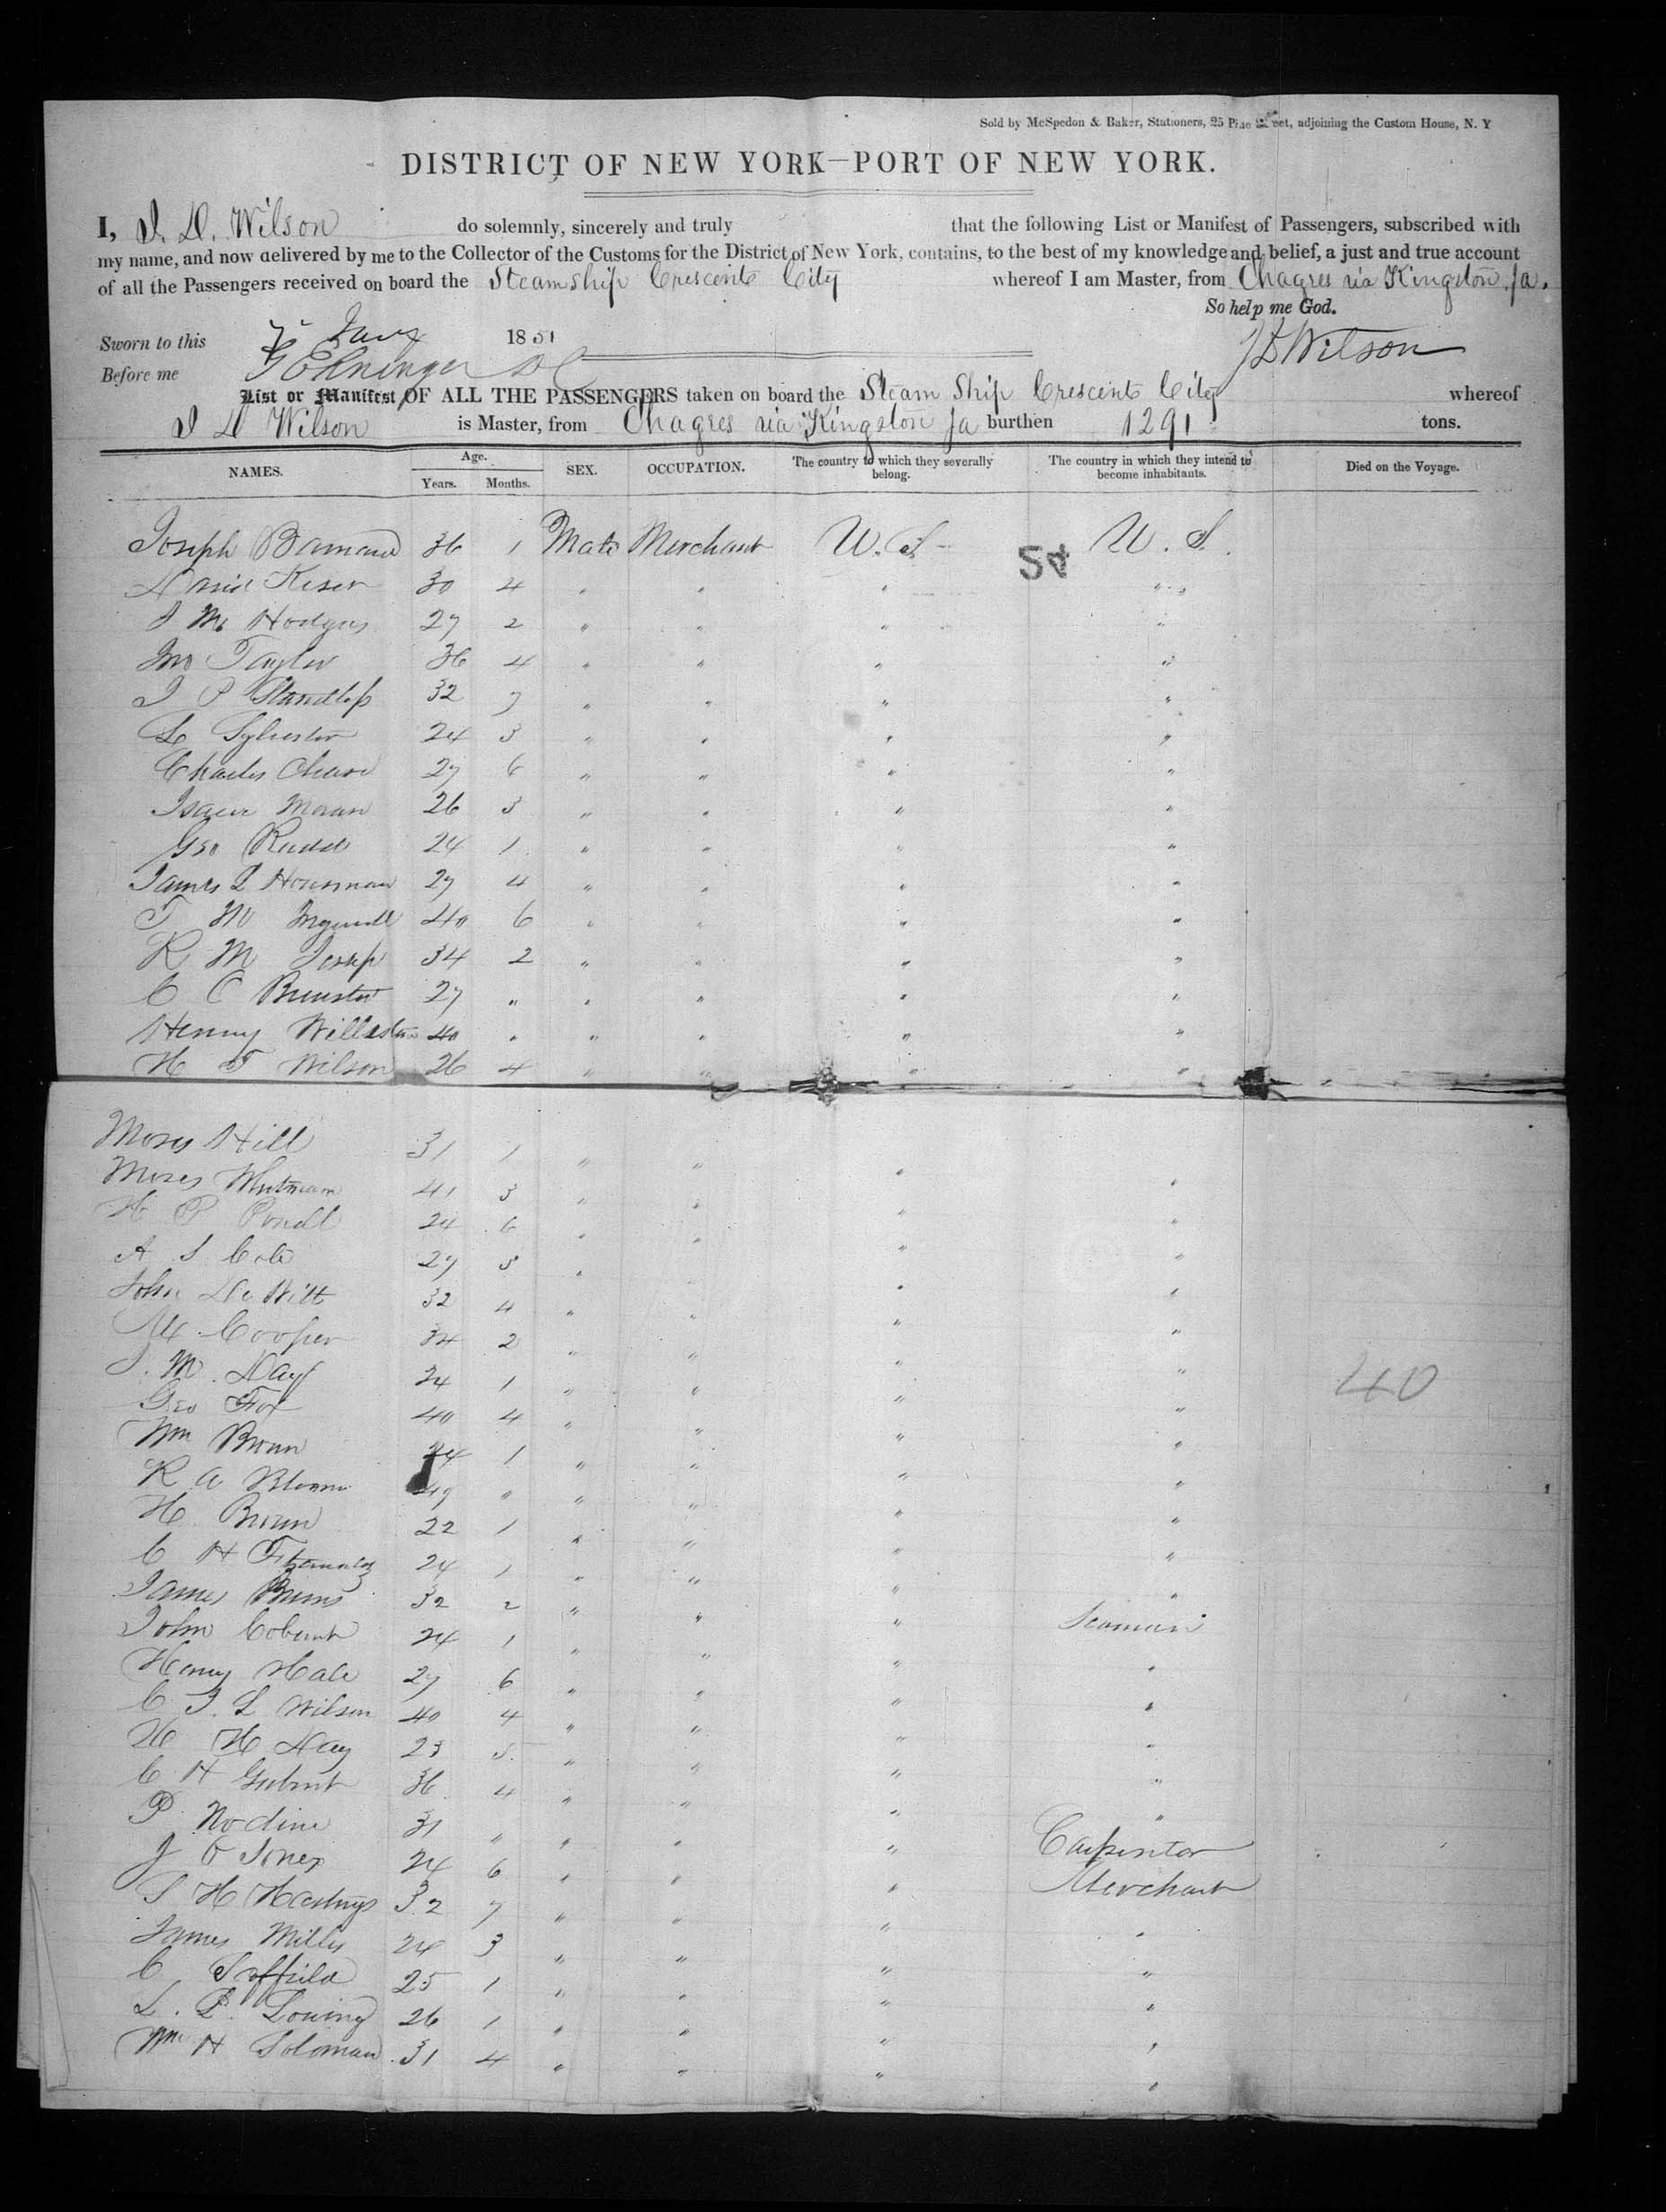 Sold by McSpedon & Baker, Stationers, 25 Pine Street, adjoining the Custom House, N. Y
DISTRICT OF NEW YORK—PORT OF NEW YORK.
I, J. D. Wilson do solemnly, sincerely and truly that the following List or Manifest of Passengers, subscribed with
my name, and now delivered by me to the Collector of the Customs for the District of New York, contains, to the best of my knowledge and belief, a just and true account
of all the Passengers received on board the Steam Ship Crescent City whereof I am Master, from Chagres via Kingston Ja.
So help me God.
Sworn to this 7 Jany 1851 J D Wilson
Before me
List or Manifest OF ALL THE PASSENGERS taken on board the Steam Ship Crescent City whereof
J D Wilson is Master, from Chagres via Kingston Ja burthen 1291 tons.
NAMES. Age. Years. Months. SEX. OCCUPATION. The country to which they severally belong. The country in which they intend to become inhabitants. Died on the Voyage.
Joseph Barnard 36 1 Male Merchant U. S. 54 U. S.
David Keser 30 4 " " " "
J M Hodges 27 2 " " " "
Jno Taylor 36 4 " " " "
J P 32 7 " " " "
L Sylvester 24 3 " " " "
Charles Chase 27 6 " " " "
Isaac Moran 26 3 " " " "
Geo Rudd 24 1 " " " "
James L Housman 27 4 " " " "
T M 40 6 " " " "
R M Jesup 34 2 " " " "
C C Brewster 27 " " " " "
Henry 40 " " " " "
H T Wilson 26 4 " " " "
Moses Hill 31 1 " " " "
Moses Whitman 41 3 " " " "
H P Powell 24 6 " " " "
A S Cole 27 5 " " " "
John De Witt 32 4 " " " "
Cooper 34 2 " " " "
J. M. Day 24 1 " " " "
40
Geo Fox 40 4 " " " "
Wm Brown 24 1 " " " "
R A 49 " " " " "
H Brown 22 1 " " " "
C H 24 1 " " " "
James Burns 32 2 " " " "
John Coburn 24 1 " " " Seaman
Henry Hale 27 6 " " " "
C J. L Wilson 40 4 " " " "
H H Day 23 5 " " " "
C H 36 4 " " " "
P Nodine 31 " " " " "
J O Jones 24 6 " " " Carpenter
S H Hastings 32 7 " " " Merchant
James Mills 24 3 " " " "
C Soffield 25 1 " " " "
L. P. Loring 26 1 " " " "
Wm H Soloman 31 4 " " " "